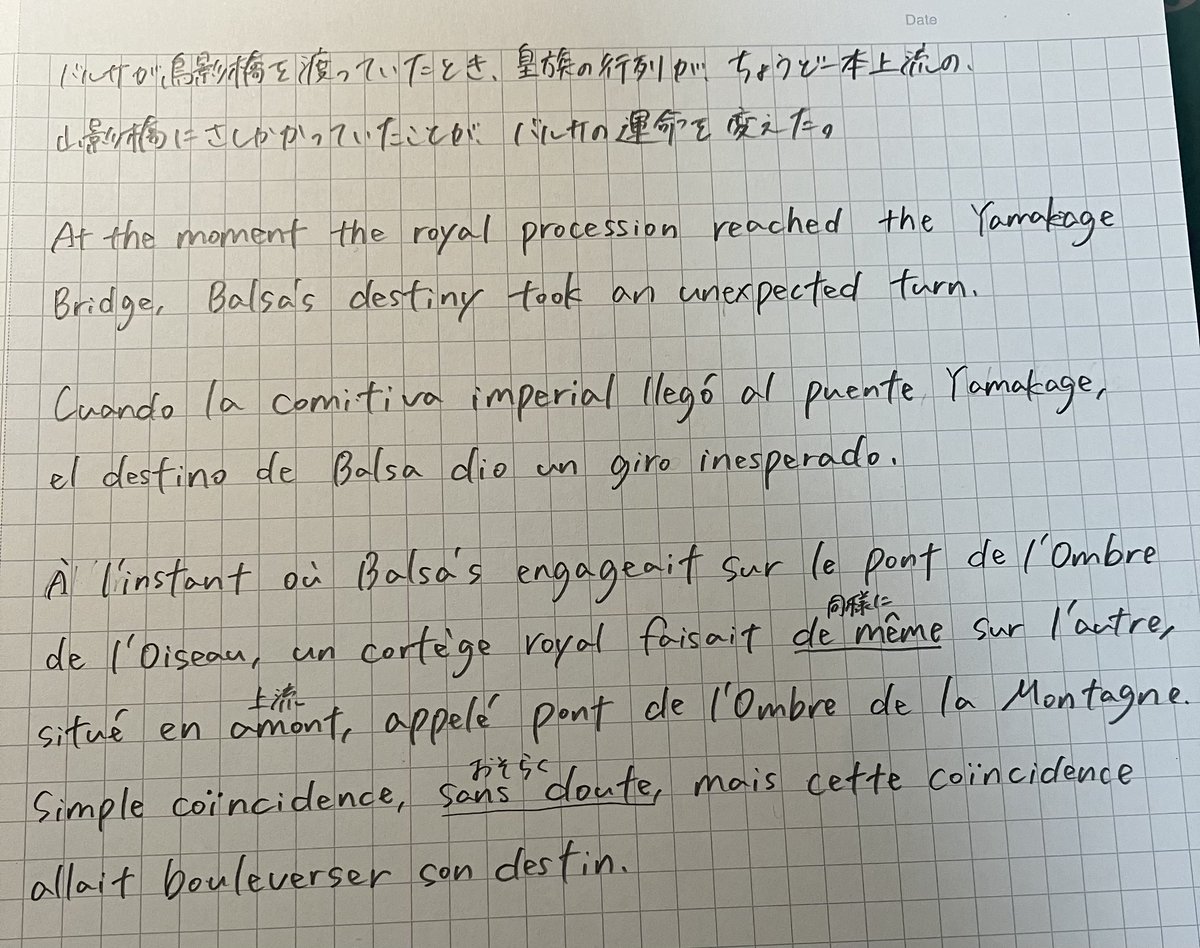 Date
バルサが鳥影橋を渡っていたとき、皇族の行列が、ちょうど一本上流の、
山影橋にさしかかっていたことが、バルサの運命を変えた。
At the moment the royal procession reached the Yamakage
Bridge, Balsa's destiny took an unexpected turn.
Cuando la comitiva imperial llegó al puente Yamakage,
el destino de Balsa dio un giro inesperado.
À l'instant où Balsa's engageait sur le pont de l'Ombre
同様に
de l'Oiseau, un cortège royal faisait de même sur l'autre,
上流に
situé en amont, appelé pont de l'Ombre de la Montagne.
おそらく
Simple coïncidence, sans doute, mais cette coïncidence
allait bouleverser son destin.